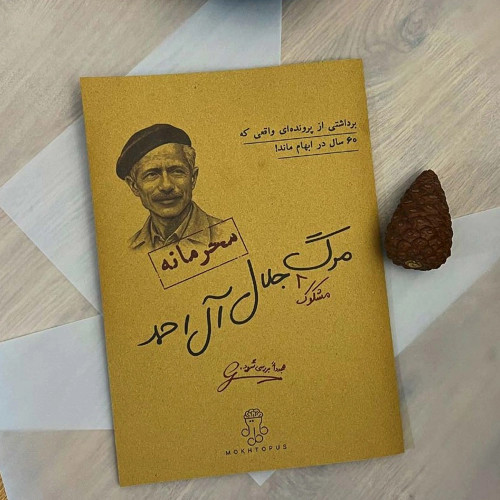 برداشتی از پرونده‌ای واقعی که
۶۰ سال در ابهام ماند!
محرمانه
مرگ جلال آل احمد
مشکوک
مجدداً بررسی شود..
MOKHTOPUS